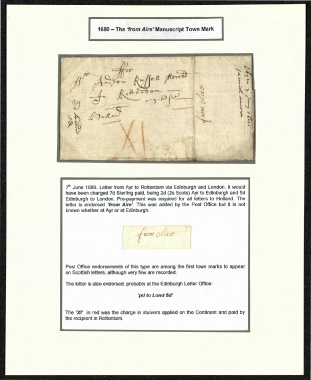 1680 – The 'from Aire' Manuscript Town Mark
Andrew Russell
In Rotterdam
Holland
XI
from Aire
7th June 1680. Letter from Ayr to Rotterdam via Edinburgh and London. It would
have been charged 7d Sterling paid, being 2d (2s Scots) Ayr to Edinburgh and 5d
Edinburgh to London. Pre-payment was required for all letters to Holland. The
letter is endorsed 'from Aire'. This was added by the Post Office but it is not
known whether at Ayr or at Edinburgh.
from Aire
Post Office endorsements of this type are among the first town marks to appear
on Scottish letters, although very few are recorded.
The letter is also endorsed, probably at the Edinburgh Letter Office:
'pd to Lond 5d'
The 'XI' in red was the charge in stuivers applied on the Continent and paid by
the recipient in Rotterdam.